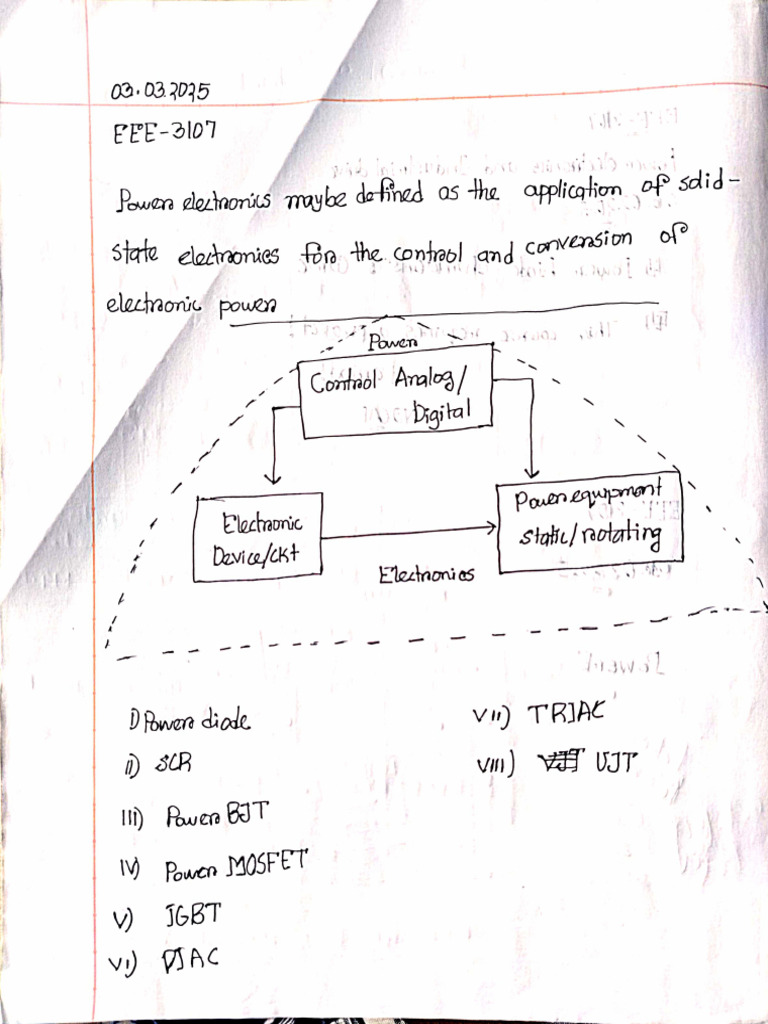 03.03.2025
EEE-3107
Power electronics maybe defined as the application of solid-
state electronics for the control and conversion of
electronic power
Power
Control Analog/
Digital
Electronic
Device/ckt
Power equipment
static/rotating
Electronics
i) Power diode
ii) SCR
iii) Power BJT
iv) Power MOSFET
v) IGBT
vi) DIAC
vii) TRIAC
viii) UJT